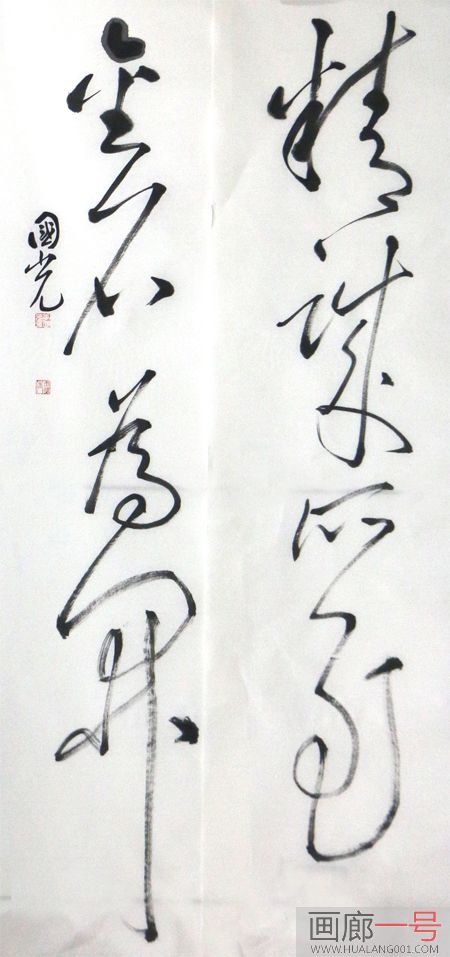 精誠所至
金石為開
國光
画廊一号
WWW.HUALANG001.COM